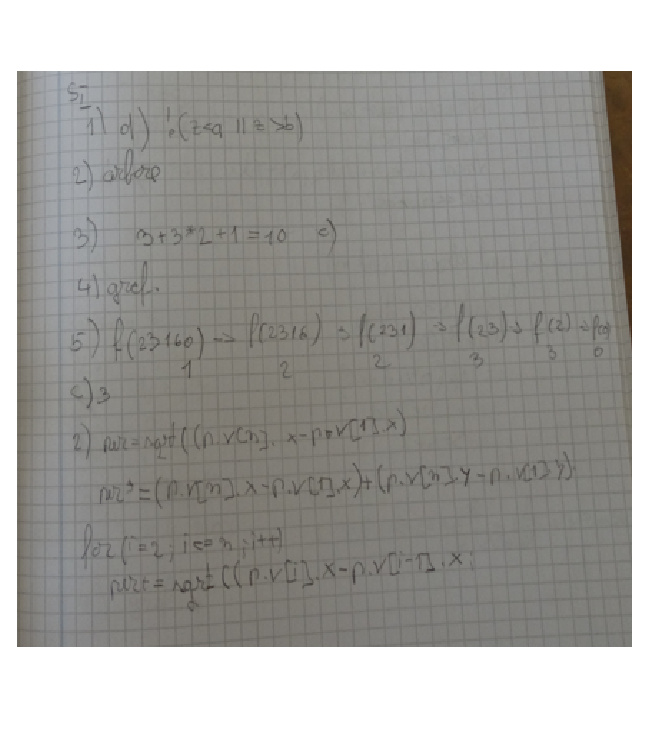 SI
1) d) !(z<a || z>b)
2) arbore
3) 3+3*2+1=10 c)
4) graf.
5) f(23160) → f(2316) → f(231) → f(23) → f(2) → f(0)
1 2 2 3 3 0
c) 3
2) per=sqrt((p.v[n].x-p.v[1].x)
=(p.v[n].x-p.v[1].x)+(p.v[n].y-p.v[1].y)
for(i=2; i<=n; i++)
per+=sqrt((p.v[i].x-p.v[i-1].x;